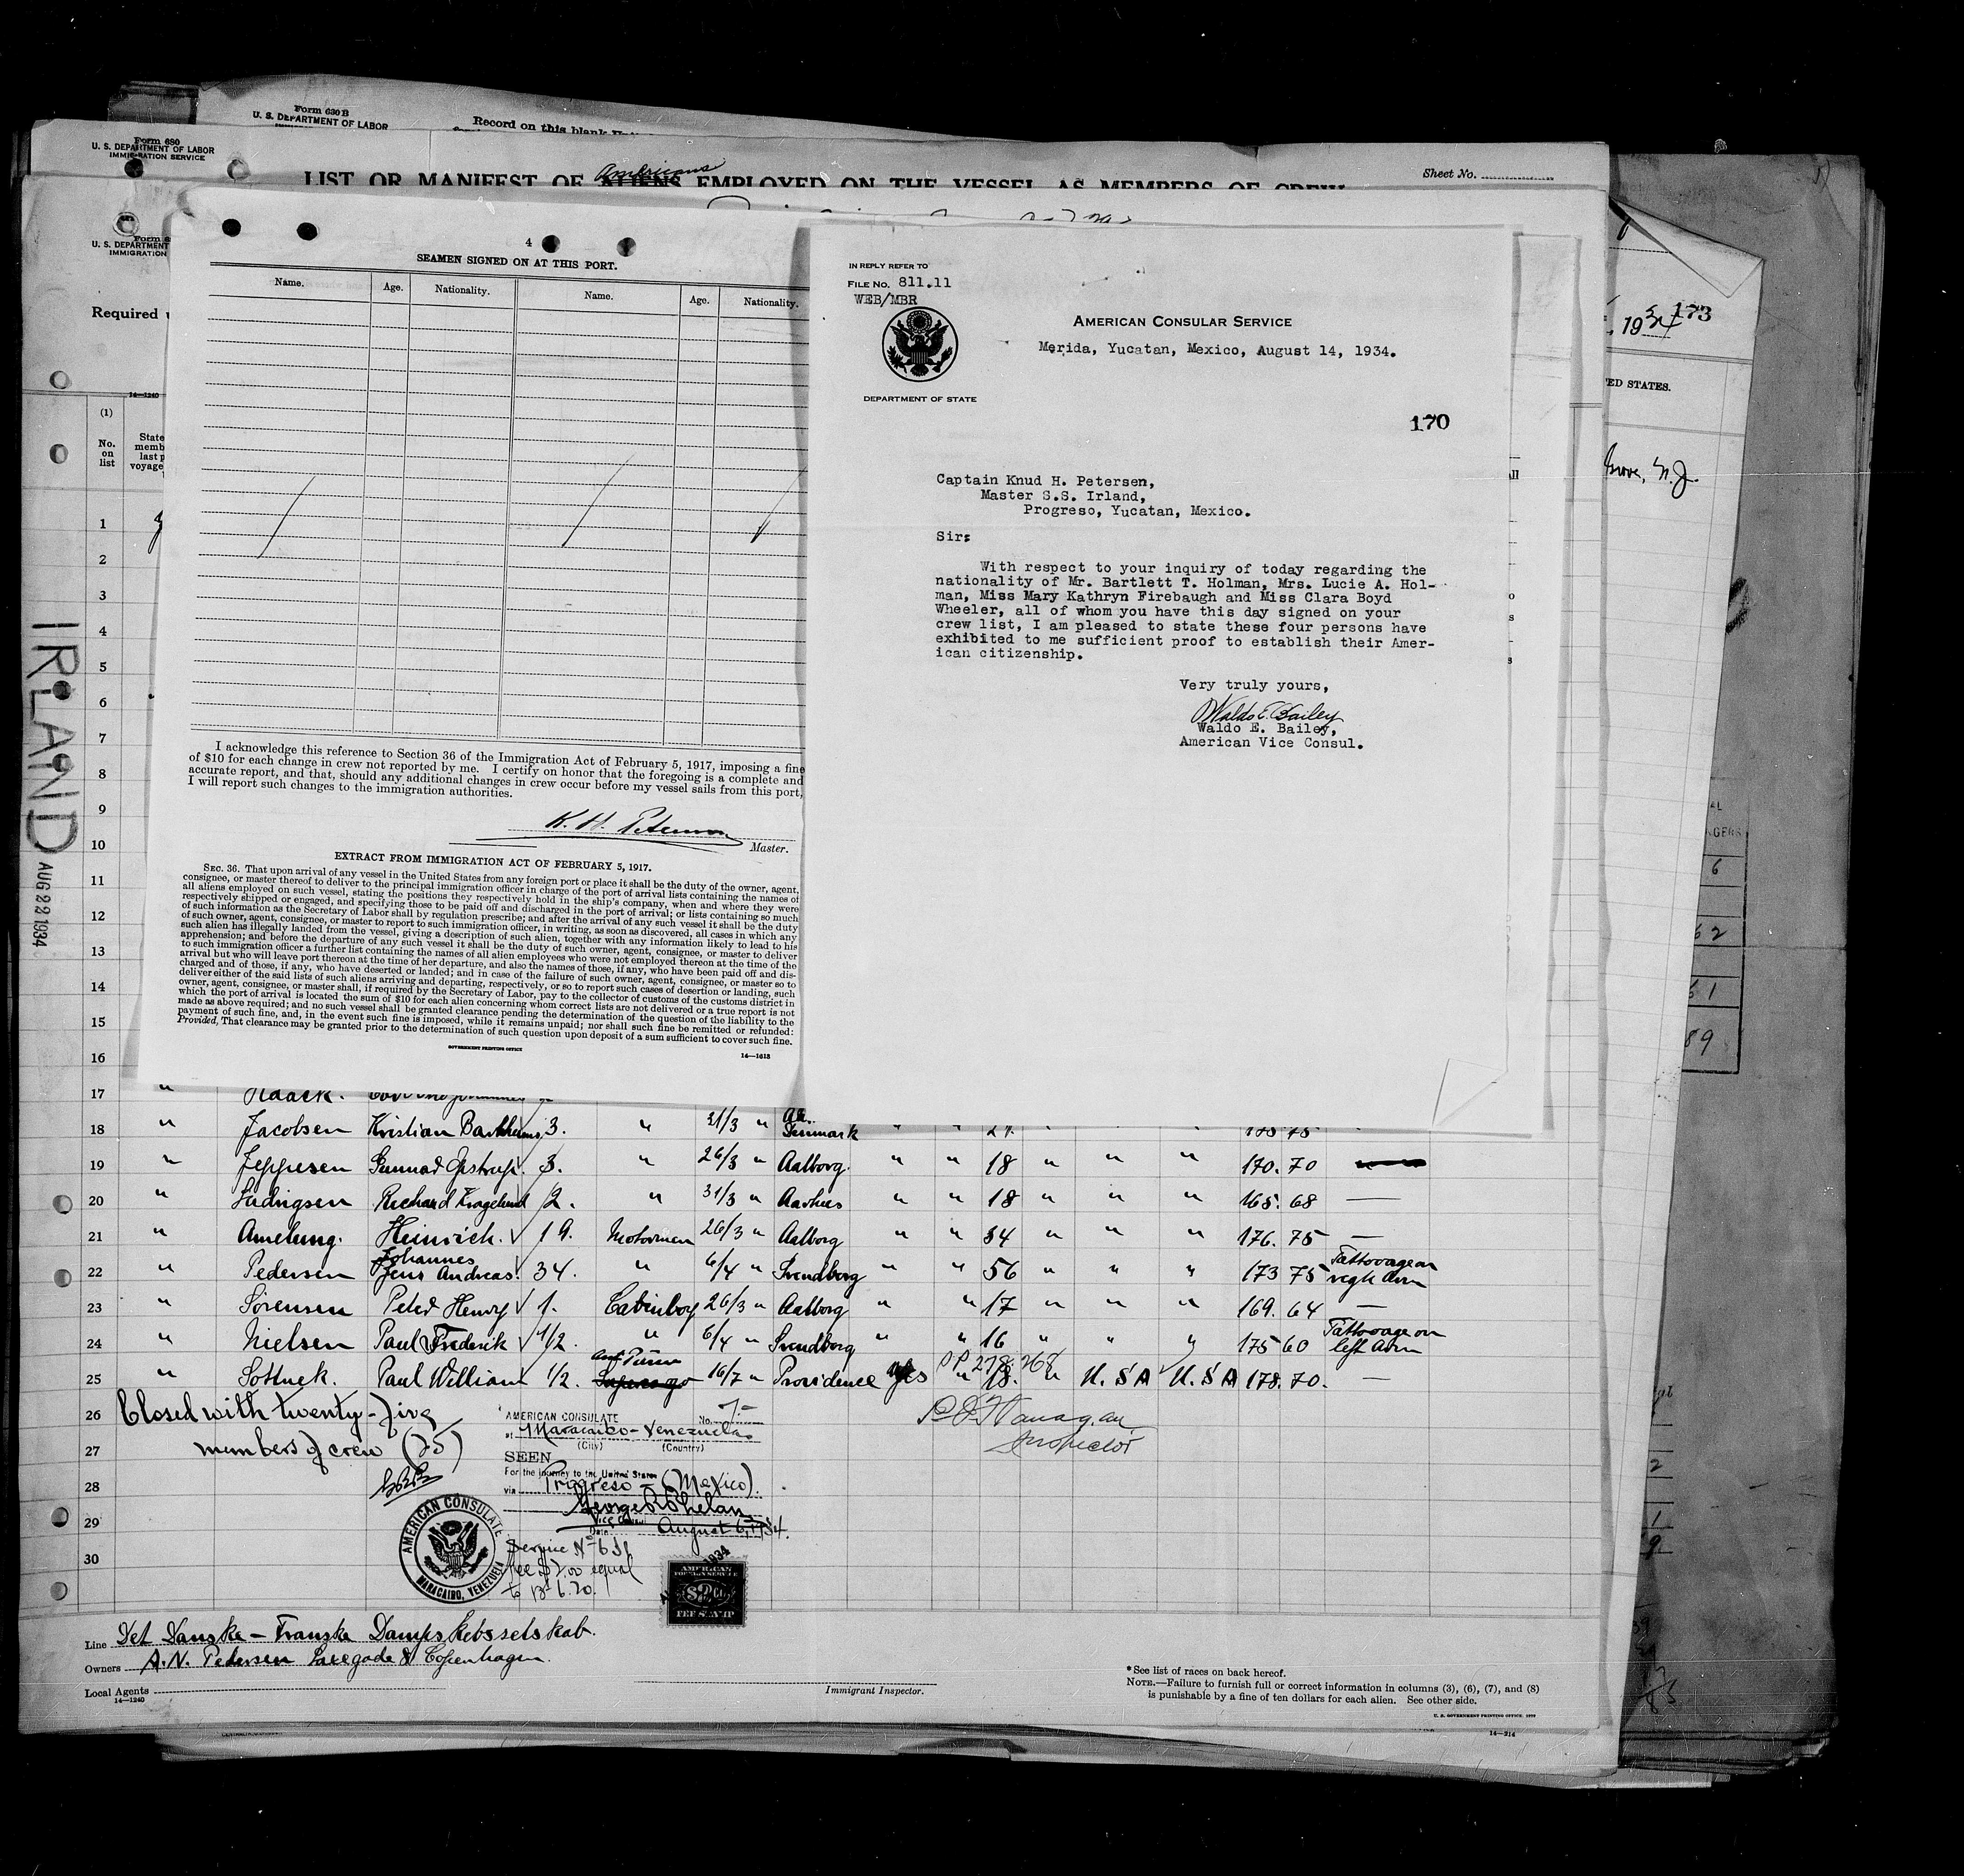 Form 630 B
U. S. DEPARTMENT OF LABOR
Record on this blank
Form 680
U. S. DEPARTMENT OF LABOR
IMMIGRATION SERVICE
Americans
LIST OR MANIFEST OF ALIENS EMPLOYED ON THE VESSEL AS MEMBERS OF CREW
Sheet No.
U. S. DEPARTMENT
IMMIGRATION
Required
14—1240
(1)
No. on list
State
memb
last p
voyage
4
SEAMEN SIGNED ON AT THIS PORT.
Name. Age. Nationality. Name. Age. Nationality.
I acknowledge this reference to Section 36 of the Immigration Act of February 5, 1917, imposing a fine
of $10 for each change in crew not reported by me. I certify on honor that the foregoing is a complete and
accurate report, and that, should any additional changes in crew occur before my vessel sails from this port,
I will report such changes to the immigration authorities.
K. H. Petersen
Master.
EXTRACT FROM IMMIGRATION ACT OF FEBRUARY 5, 1917.
SEC. 36. That upon arrival of any vessel in the United States from any foreign port or place it shall be the duty of the owner, agent,
consignee, or master thereof to deliver to the principal immigration officer in charge of the port of arrival lists containing the names of
all aliens employed on such vessel, stating the positions they respectively hold in the ship's company, when and where they were
respectively shipped or engaged, and specifying those to be paid off and discharged in the port of arrival; or lists containing so much
of such information as the Secretary of Labor shall by regulation prescribe; and after the arrival of any such vessel it shall be the duty
of such owner, agent, consignee, or master to report to such immigration officer, in writing, as soon as discovered, all cases in which any
such alien has illegally landed from the vessel, giving a description of such alien, together with any information likely to lead to his
apprehension; and before the departure of any such vessel it shall be the duty of such owner, agent, consignee, or master to deliver
to such immigration officer a further list containing the names of all alien employees who were not employed thereon at the time of the
arrival but who will leave port thereon at the time of her departure, and also the names of those, if any, who have been paid off and dis-
charged and of those, if any, who have deserted or landed; and in case of the failure of such owner, agent, consignee, or master so to
deliver either of the said lists of such aliens arriving and departing, respectively, or so to report such cases of desertion or landing, such
owner, agent, consignee, or master shall, if required by the Secretary of Labor, pay to the collector of customs of the customs district in
which the port of arrival is located the sum of $10 for each alien concerning whom correct lists are not delivered or a true report is not
made as above required; and no such vessel shall be granted clearance pending the determination of the question of the liability to the
payment of such fine, and, in the event such fine is imposed, while it remains unpaid; nor shall such fine be remitted or refunded:
Provided, That clearance may be granted prior to the determination of such question upon deposit of a sum sufficient to cover such fine.
GOVERNMENT PRINTING OFFICE
14—1613
IN REPLY REFER TO
FILE NO. 811.11
WEB/MBR
AMERICAN CONSULAR SERVICE
Merida, Yucatan, Mexico, August 14, 1934.
DEPARTMENT OF STATE
170
Captain Knud H. Petersen,
Master S.S. Irland,
Progreso, Yucatan, Mexico.
Sir:
With respect to your inquiry of today regarding the
nationality of Mr. Bartlett T. Holman, Mrs. Lucie A. Hol-
man, Miss Mary Kathryn Firebaugh and Miss Clara Boyd
Wheeler, all of whom you have this day signed on your
crew list, I am pleased to state these four persons have
exhibited to me sufficient proof to establish their Amer-
ican citizenship.
Very truly yours,
Waldo E. Bailey
Waldo E. Bailey,
American Vice Consul.
1934
173
ED STATES.
N. J.
IRLAND
AUG 22 1934
1
2
3
4
5
6
7
8
9
10
11
12
13
14
15
16
17 " Haack.
18 " Jacobsen Kristian 3. " 21/3 " Denmark " " 21. " " " 175 75
19 " Jeppesen Gunnar 3. " 26/3 " Aalborg. " " 18 " " " 170. 70
20 " Ludvigsen Richard Kragelund 2. " 31/3 " Aarhus " " 18 " " " 165. 68 —
21 " Amelung. Heinrich. 19. Motorman 26/3 " Aalborg " " 34 " " " 176. 75 —
22 " Pedersen Johannes Jens Andreas. 34. " 6/4 " Svendborg " " 56 " " " 173 75 Tattooage on right Arm
23 " Sørensen Peter Henry 1. Cabinboy 26/3 " Aalborg " " 17 " " " 169. 64 —
24 " Nielsen Paul Frederik 1/2. " 6/4 " Svendborg " " 16 " " " 175 60 Tattooage on left Arm
25 " Paul William 1/2. Supercargo 16/7 " Providence yes " 18. " U.S.A U.S.A 178. 70. —
PP 278268
26 Closed with twenty-five
27 members of crew (25)
28
29
30
AMERICAN CONSULATE No. 7-
at Maracaibo - Venezuela
(City) (Country)
SEEN
For the journey to the United States
via Progreso - (Mexico).
George R Phelan
Vice Consul
Date August 6, 1934.
Service No 631
fee $2.00 equal
to Bs 6.70.
AMERICAN CONSULATE
MARACAIBO, VENEZUELA
AMERICAN
FOREIGN SERVICE
$2.00
FEE STAMP
1934
Flanagan
Inspector
Line Det Danske - Franske Dampskibsselskab.
Owners A.N. Petersen 8 Copenhagen.
Local Agents
14—1240
Immigrant Inspector.
* See list of races on back hereof.
NOTE.—Failure to furnish full or correct information in columns (3), (6), (7), and (8)
is punishable by a fine of ten dollars for each alien. See other side.
U. S. GOVERNMENT PRINTING OFFICE
14—214